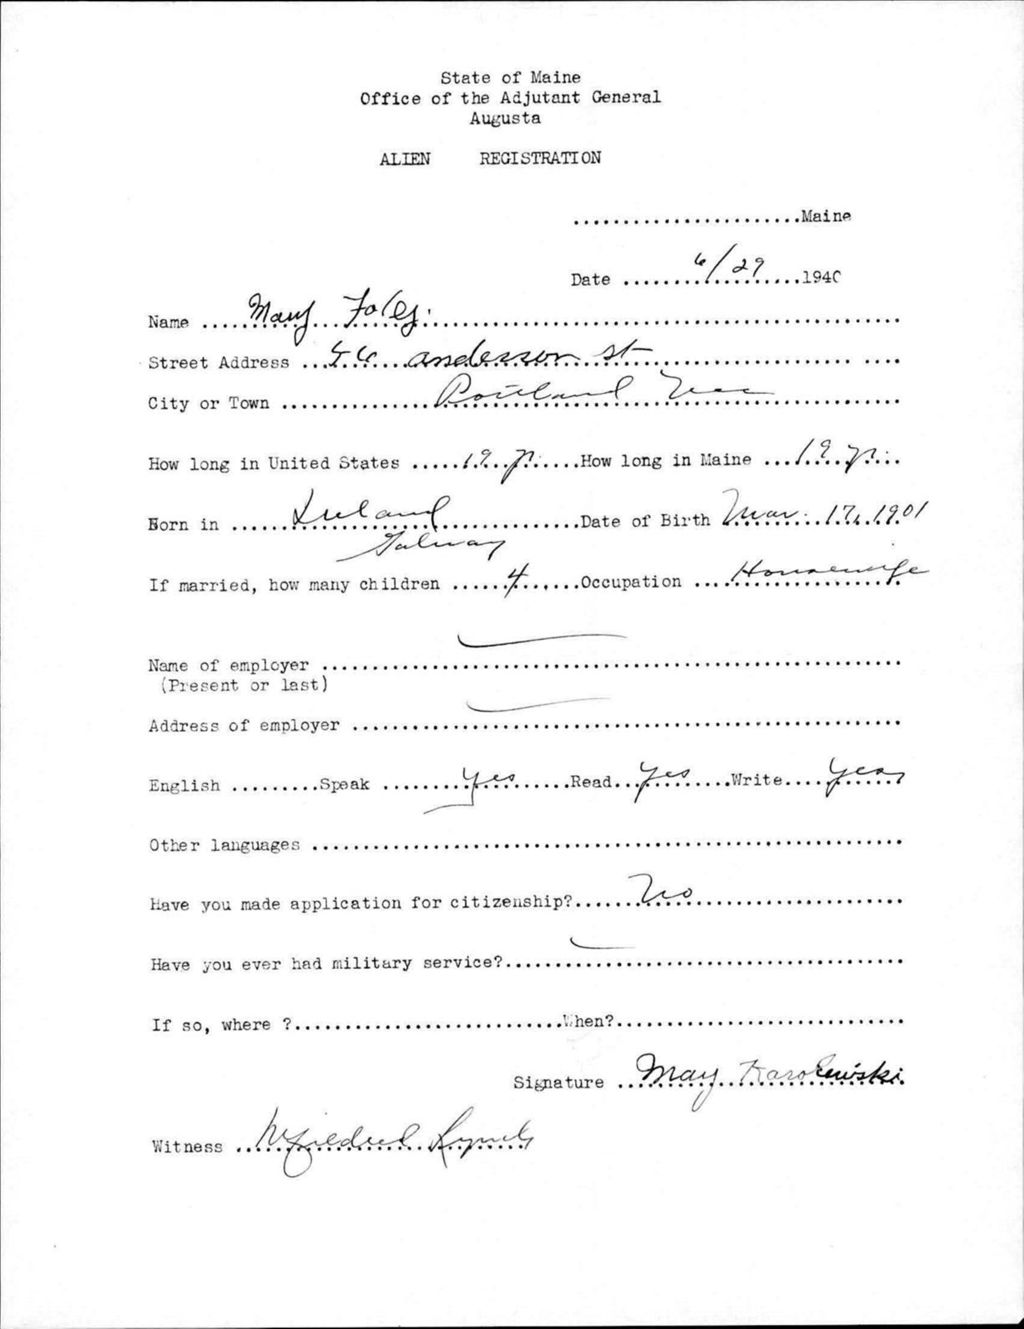 State of Maine
Office of the Adjutant General
Augusta
ALIEN REGISTRATION
.......................Maine
Date ........6/29.....1940
Name .....Mary Foley.
Street Address ...56 anderson st
City or Town ..............Portland
How long in United States .....19 yr.....How long in Maine ...19 yr..
Born in ......Ireland..............Date of Birth Mar. 17, 1901
Galway
If married, how many children ......4......Occupation ....Housewife
Name of employer ..........................................................
(Present or last)
Address of employer .......................................................
English .........Speak .........yes......Read...yes.....Write....yes
Other languages ...........................................................
Have you made application for citizenship?.......No.....................
Have you ever had military service?........................................
If so, where ?..........................When?.............................
Signature ..May Karolewski
Witness ..Mildred